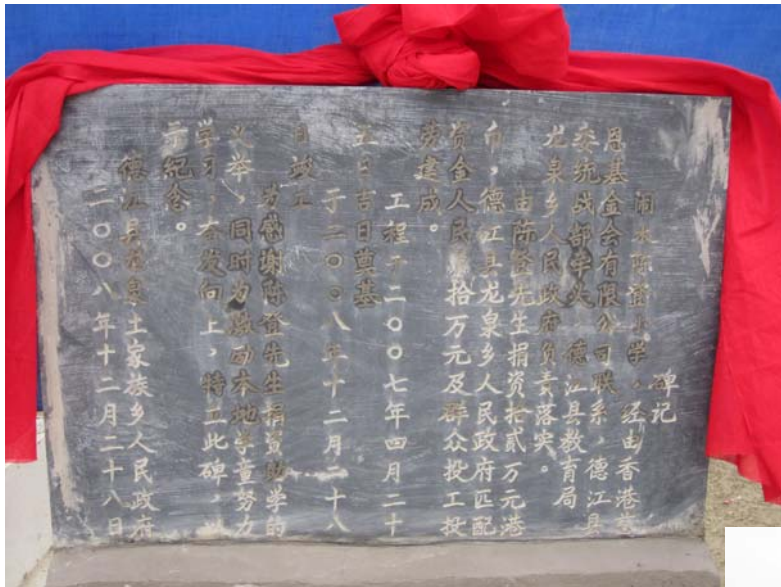 碑记
闹水陈登小学，经由香港慈
恩基金会有限公司联系，德江县
委统战部牵头，德江县教育局
龙泉乡人民政府负责落实。
由陈登先生捐资拾贰万元港
币，德江县龙泉乡人民政府匹配
资金人民拾万元及群众投工投
劳建成。
工程于二〇〇七年四月二十
五日吉日奠基
于二〇〇八年十二月二十八
日竣工
为感谢陈登先生捐资助学的
义举，同时为激励本地学童努力
学习，奋发向上，特立此碑，以
示纪念。
德江县龙泉土家族乡人民政府
二〇〇八年十二月二十八日